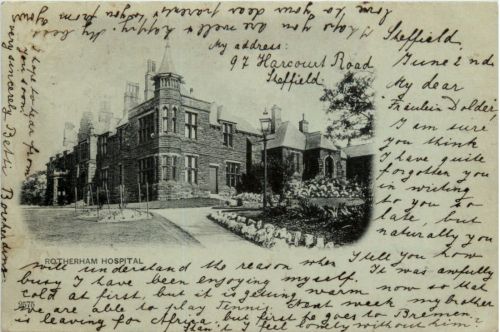 Sheffield,
June 2nd
My dear
Fräulein Dolder,
I am sure
you think
I have quite
forgotten you
in writing
to you so
late, but
naturally you
will understand the reason when I tell you how
busy I have been enjoying myself. It was awfully
cold at first, but it is getting warm now so that
we are able to play Tennis. Next week my brother
is leaving for Africa, but first he goes to Bremen.
Won't I feel lonely without him?
I hope to hear from
you soon
very sincerely Betti
I hope you are well & happy. My best
love to your dear parents & you from your
My address:
97 Harcourt Road
Sheffield.
ROTHERHAM HOSPITAL